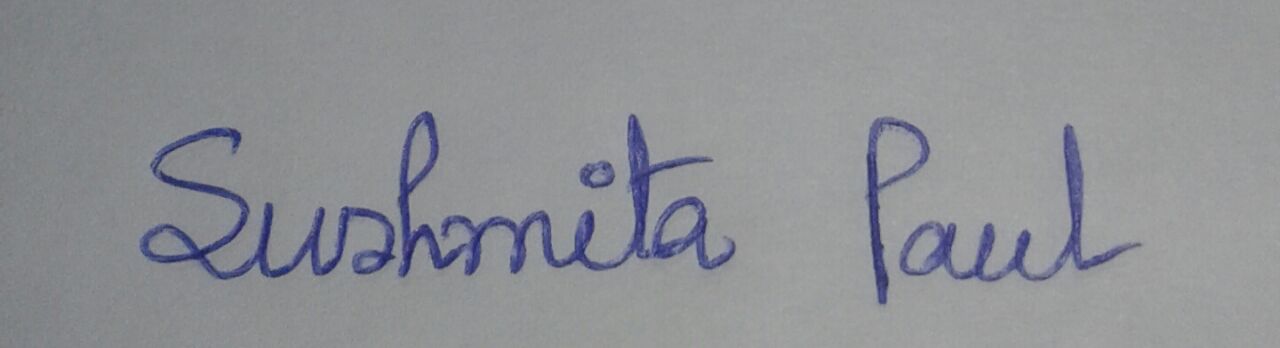 Sushmita Paul